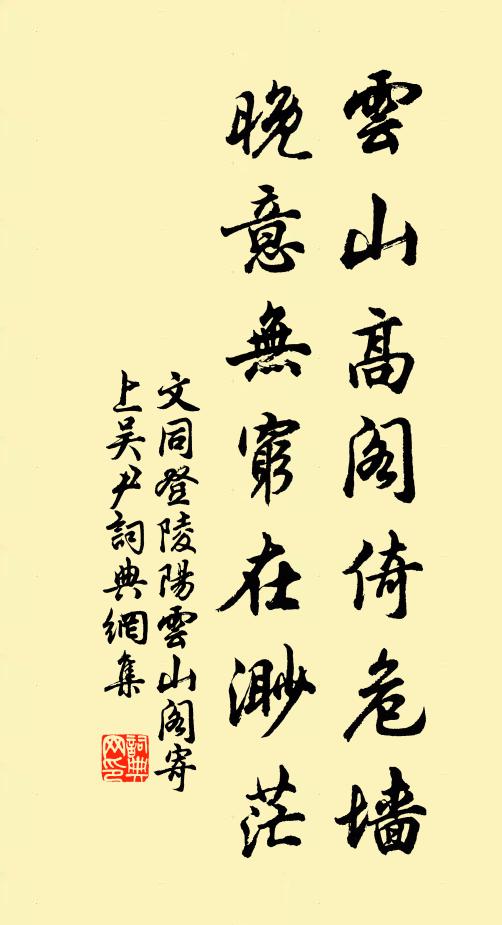 雲山高阁倚危墙
晚意無窮在渺茫
文同登陵陽雲山阁寄
上吴尹詞典網集
詞典
网印